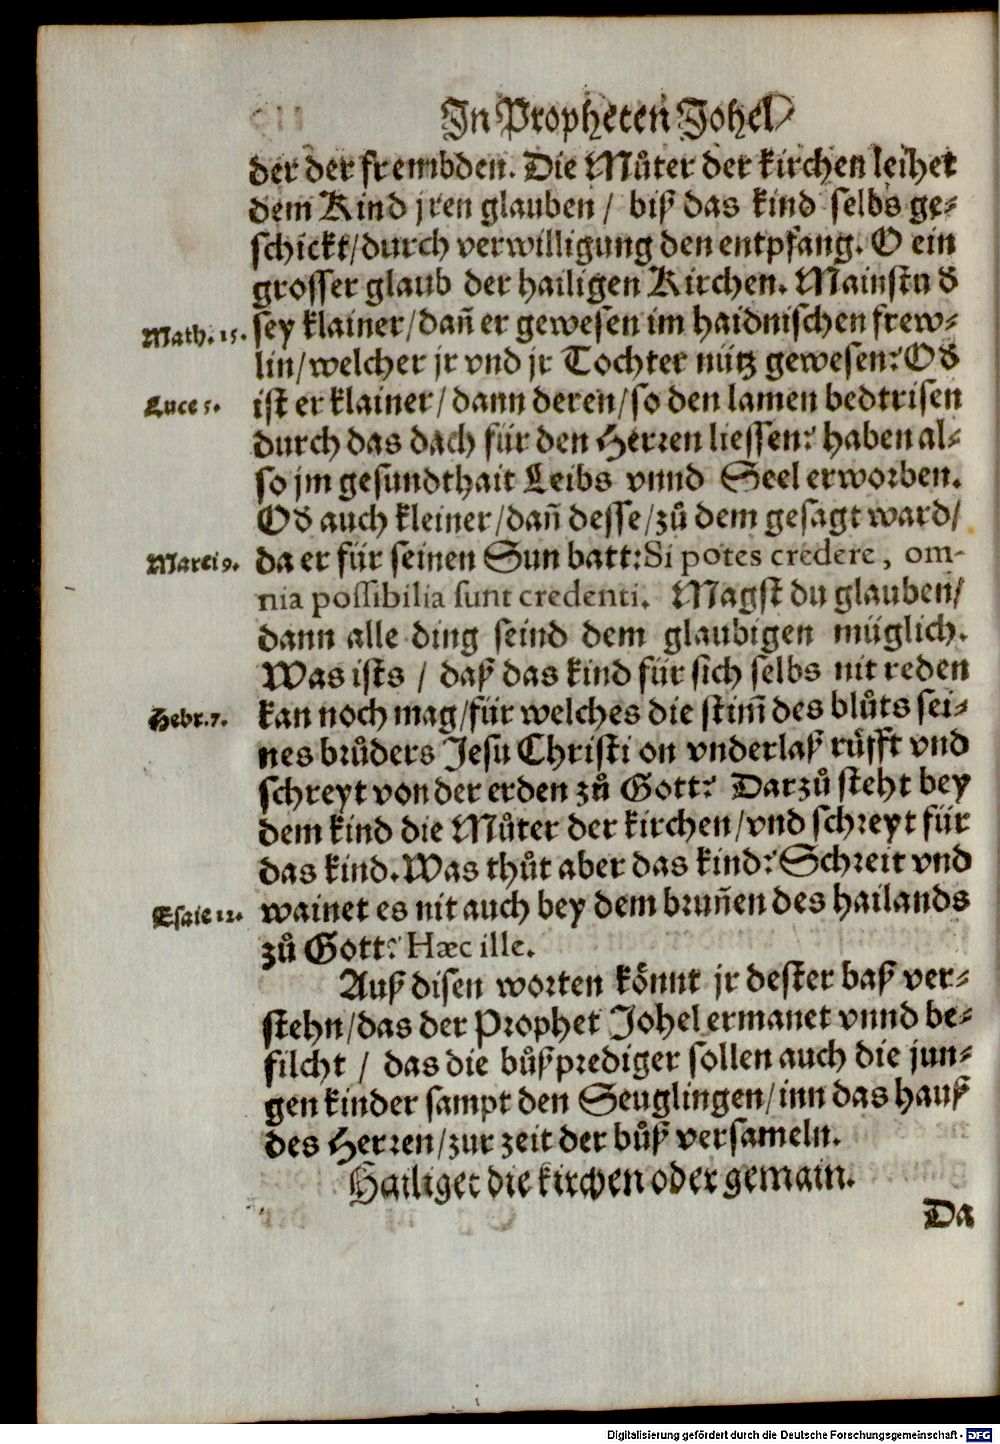 In Propheten Johel
der der frembden. Die Můter der kirchen leihet
dem Kind jren glauben / biß das kind selbs ge-
schickt/durch verwilligung den entpfang. O ein
grosser glaub der hailigen Kirchen. Mainstu d
Math. 15. sey klainer/dañ er gewesen im haidnischen frew-
lin/welcher jr vnd jr Tochter nütz gewesen? Od
Luce 5. ist er klainer/dann deren/so den lamen bedtrisen
durch das dach für den Herren liessen? haben al-
so jm gesundthait Leibs vnnd Seel erworben.
Od auch kleiner/dañ desse/zů dem gesagt ward/
Marci 9. da er für seinen Sun batt: Si potes credere, om-
nia possibilia sunt credenti. Magst du glauben/
dann alle ding seind dem glaubigen müglich.
Was ists / daß das kind für sich selbs nit reden
Hebr. 7. kan noch mag/für welches die stim̃ des blůts sei-
nes brůders Jesu Christi on vnderlaß růfft vnd
schreyt von der erden zů Gott? Darzů steht bey
dem kind die Můter der kirchen/vnd schreyt für
das kind. Was thůt aber das kind? Schreit vnd
Esaie 12. wainet es nit auch bey dem brun̄en des hailands
zů Gott? Hæc ille.
Auß disen worten könnt jr dester baß ver-
stehn/das der Prophet Johel ermanet vnnd be-
filcht / das die bůßprediger sollen auch die jun-
gen kinder sampt den Seuglingen/inn das hauß
des Herren/zur zeit der bůß versameln.
Hailiget die kirchen oder gemain.
Da
Digitalisierung gefördert durch die Deutsche Forschungsgemeinschaft - DFG